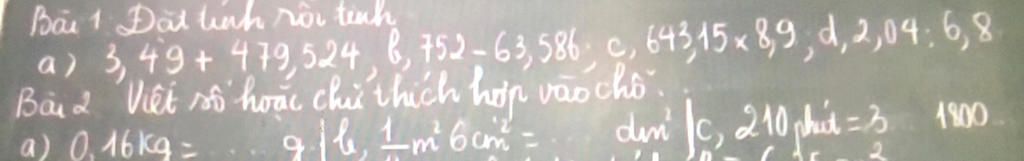 Bài 1 Đặt tính rồi tính
a) 3,49 + 479,524, b, 752 - 63,586; c, 643,15 x 8,9; d, 2,04 : 6,8
Bài 2 Viết số hoặc chữ thích hợp vào chỗ...
a) 0,16kg = .... g | b, m² 6cm² = ... dm² | c, 210 phút = 3